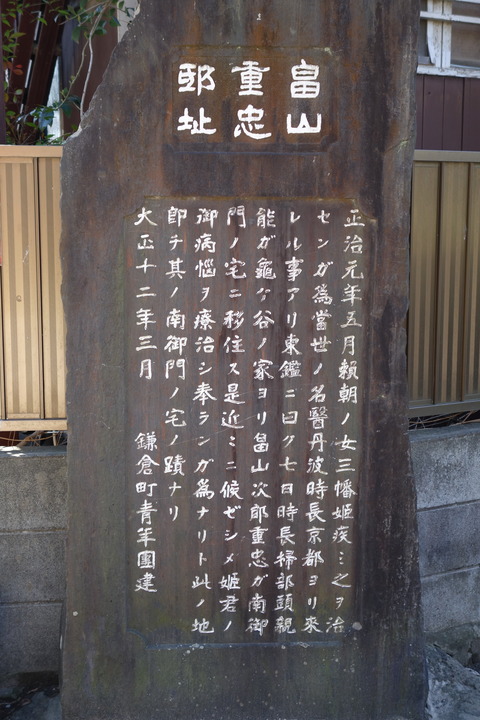 畠山
重忠
邸址
正治元年五月頼朝ノ女三幡姫疾ミ之ヲ治
センガ為當世ノ名醫丹波時長京都ヨリ來
レル事アリ東鑑ニ曰ク七日時長掃部頭親
能ガ龜ケ谷ノ家ヨリ畠山次郎重忠ガ南御
門ノ宅ニ移住ス是近ミニ候ゼシメ姫君ノ
御病惱ヲ療治シ奉ランガ為ナリト此ノ地
即チ其ノ南御門ノ宅ノ蹟ナリ
大正十二年三月 鎌倉町青年團建